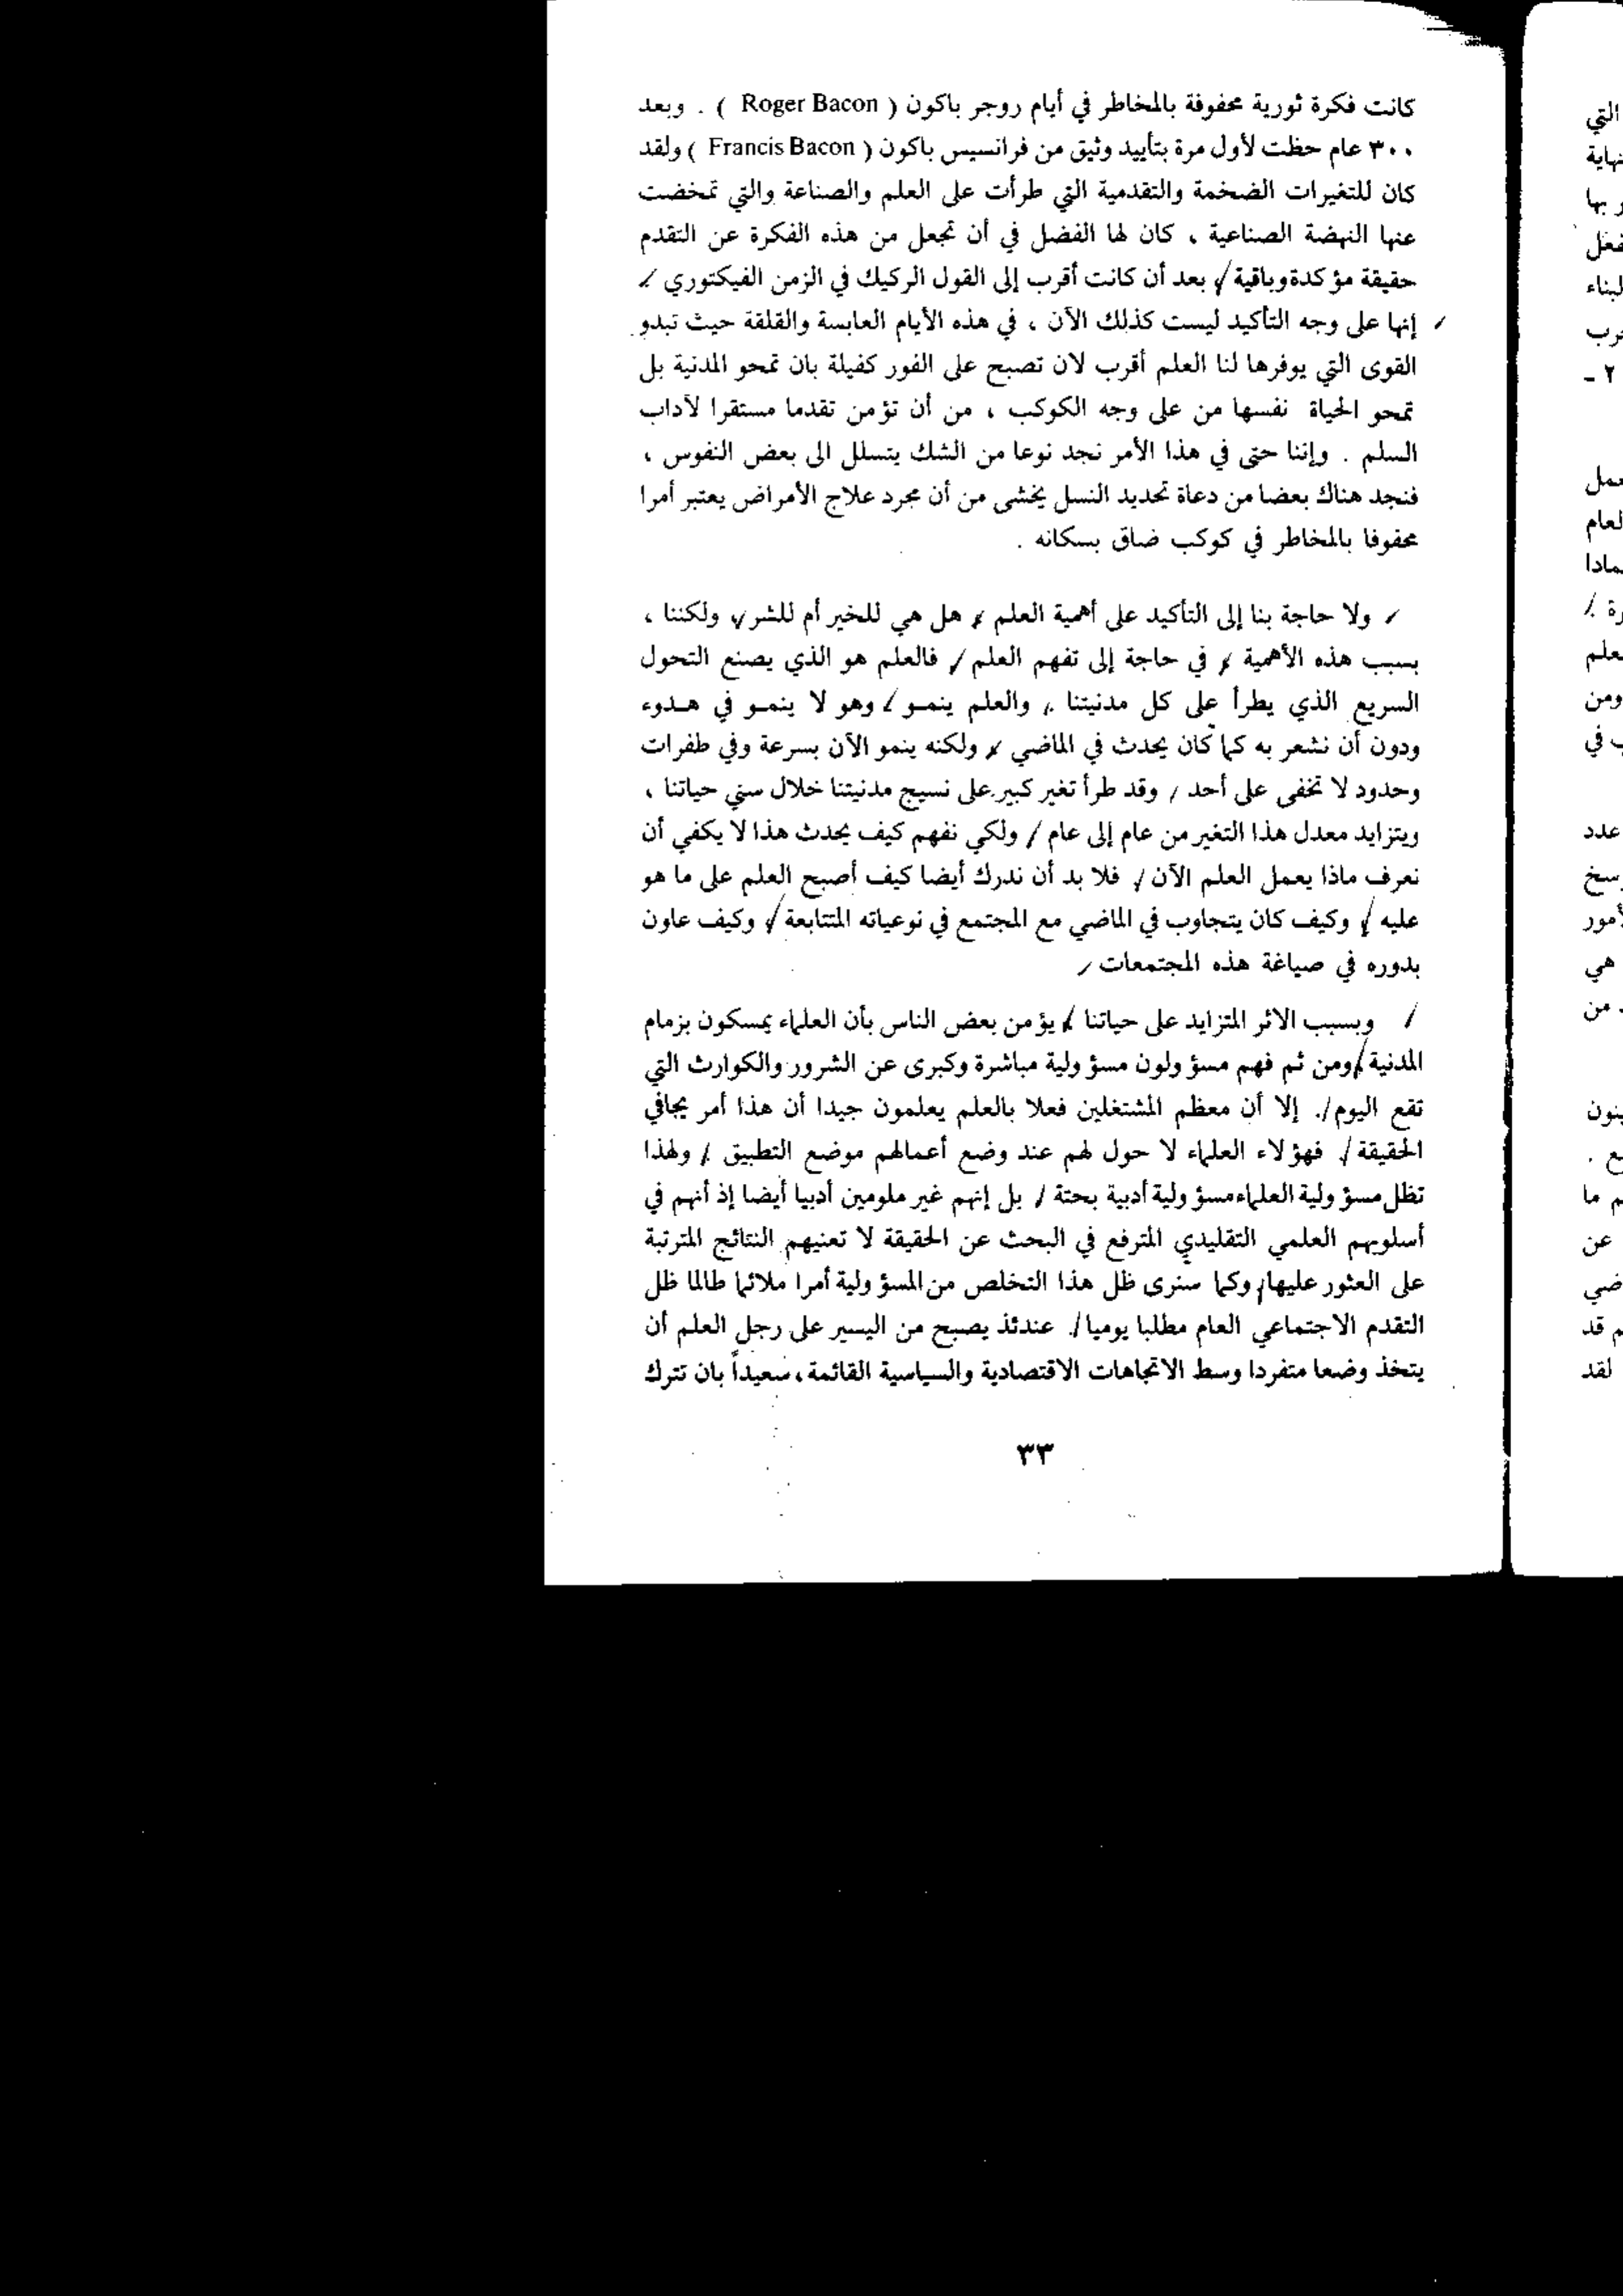 كانت فكرة ثورية محفوفة بالمخاطر في أيام روجر باكون ( Roger Bacon ) . وبعد
٣٠٠ عام حظت لأول مرة بتأييد وثيق من فرانسيس باكون ( Francis Bacon ) ولقد
كان للتغيرات الضخمة والتقدمية التي طرأت على العلم والصناعة والتي تمخضت
عنها النهضة الصناعية ، كان لها الفضل في أن تجعل من هذه الفكرة عن التقدم
حقيقة مؤكدة وباقية ، بعد أن كانت أقرب إلى القول الركيك في الزمن الفيكتوري .
إنها على وجه التأكيد ليست كذلك الآن ، في هذه الأيام العابسة والقلقة حيث تبدو
القوى التي يوفرها لنا العلم أقرب لان تصبح على الفور كفيلة بان تمحو المدنية بل
تمحو الحياة نفسها من على وجه الكوكب ، من أن تؤمن تقدما مستقرا لآداب
السلم . وإننا حتى في هذا الأمر نجد نوعا من الشك يتسلل الى بعض النفوس ،
فنجد هناك بعضا من دعاة تحديد النسل يخشى من أن مجرد علاج الأمراض يعتبر أمرا
محفوفا بالمخاطر في كوكب ضاق بسكانه .
ولا حاجة بنا إلى التأكيد على أهمية العلم ، هل هي للخير أم للشر ، ولكننا ،
بسبب هذه الأهمية ، في حاجة إلى تفهم العلم ، فالعلم هو الذي يصنع التحول
السريع الذي يطرأ على كل مدنيتنا ، والعلم ينمو ، وهو لا ينمو في هدوء
ودون أن نشعر به كما كان يحدث في الماضي ، ولكنه ينمو الآن بسرعة وفي طفرات
وحدود لا تخفى على أحد ، وقد طرأ تغير كبير على نسيج مدنيتنا خلال سني حياتنا ،
ويتزايد معدل هذا التغير من عام إلى عام ، ولكي نفهم كيف يحدث هذا لا يكفي أن
نعرف ماذا يعمل العلم الآن ، فلا بد أن ندرك أيضا كيف أصبح العلم على ما هو
عليه ، وكيف كان يتجاوب في الماضي مع المجتمع في نوعياته المتتابعة ، وكيف عاون
بدوره في صياغة هذه المجتمعات .
وبسبب الاثر المتزايد على حياتنا ، يؤمن بعض الناس بأن العلماء يمسكون بزمام
المدنية ، ومن ثم فهم مسؤولون مسؤولية مباشرة وكبرى عن الشرور والكوارث التي
تقع اليوم . إلا أن معظم المشتغلين فعلا بالعلم يعلمون جيدا أن هذا أمر يجافي
الحقيقة . فهؤلاء العلماء لا حول لهم عند وضع أعمالهم موضع التطبيق . ولهذا
تظل مسؤولية العلماء مسؤولية أدبية بحتة ، بل إنهم غير ملومين أدبيا أيضا إذ أنهم في
أسلوبهم العلمي التقليدي المترفع في البحث عن الحقيقة لا تعنيهم النتائج المترتبة
على العثور عليها ، وكما سنرى ظل هذا التخلص من المسؤولية أمرا ملائما طالما ظل
التقدم الاجتماعي العام مطلبا يوميا . عندئذ يصبح من اليسير على رجل العلم أن
يتخذ وضعا متفردا وسط الاتجاهات الاقتصادية والسياسية القائمة ، سعيداً بان تترك
٣٣